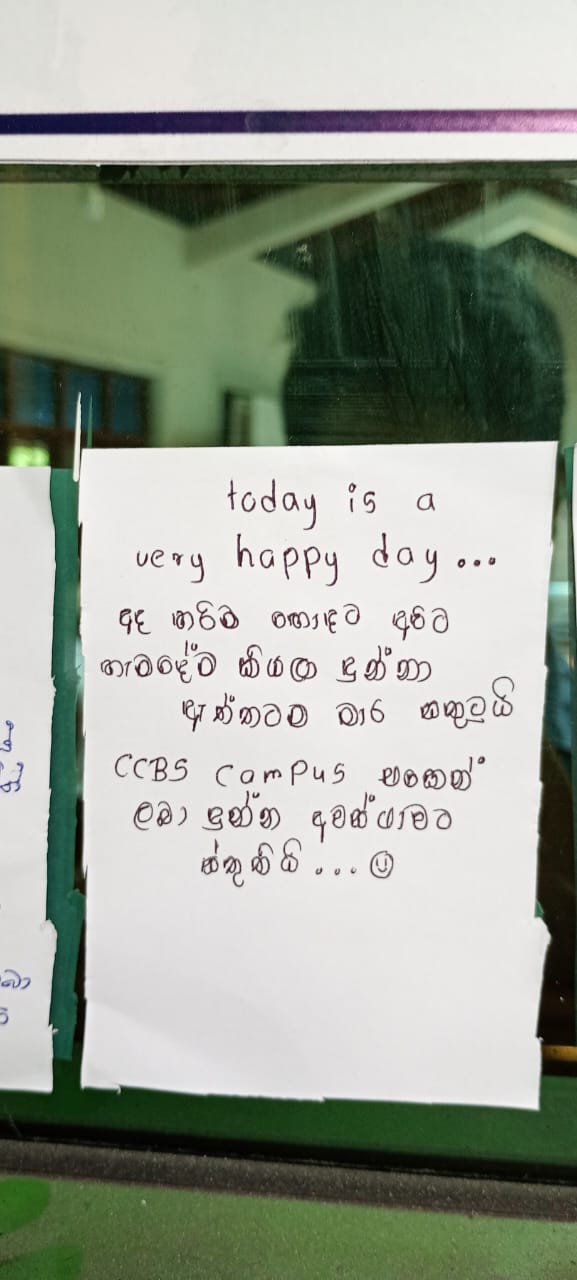 today is a
very happy day...
අද හරිම හොඳට අපිට
හැමදේම කියලා දුන්නා
ඇත්තටම මාර සතුටුයි
CCBS Campus එකෙන්
ලබා දුන්න අවස්ථාවට
ස්තුතියි ... ☺